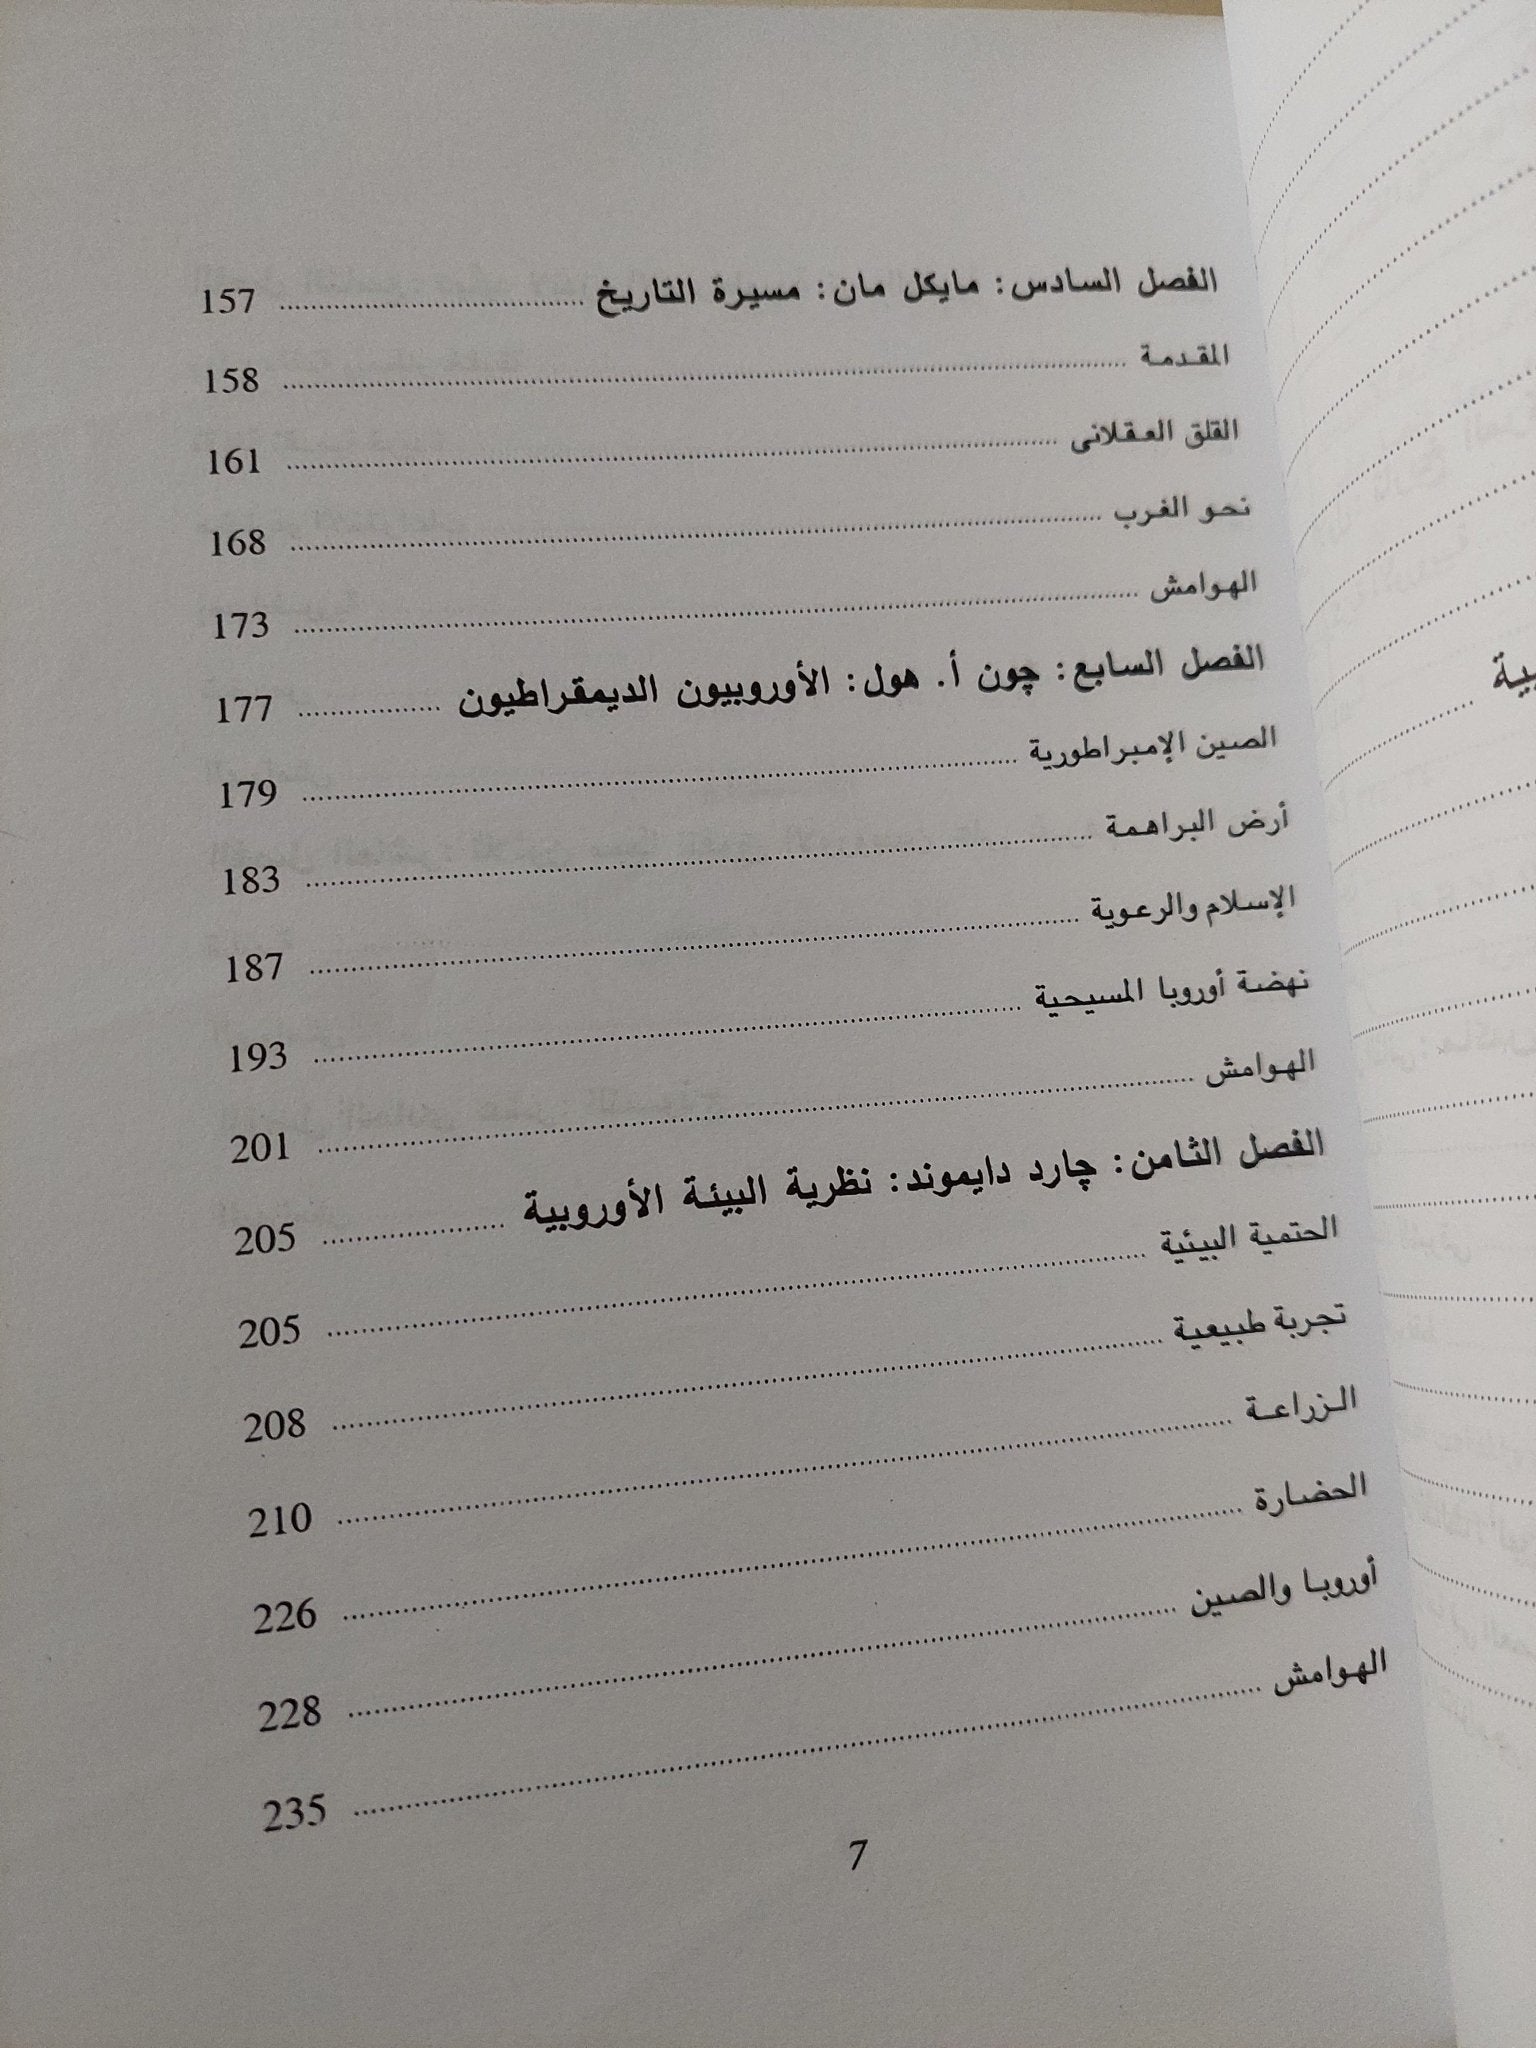 الفصل السادس: مايكل مان: مسيرة التاريخ ........ 157
المقدمة ........ 158
القلق العقلانى ........ 161
نحو الغرب ........ 168
الهوامش ........ 173
الفصل السابع: چون أ. هول: الأوروبيون الديمقراطيون ........ 177
الصين الإمبراطورية ........ 179
أرض البراهمة ........ 183
الإسلام والرعوية ........ 187
نهضة أوروبا المسيحية ........ 193
الهوامش ........ 201
الفصل الثامن: چارد دايموند: نظرية البيئة الأوروبية ........ 205
الحتمية البيئية ........ 205
تجربة طبيعية ........ 208
الزراعة ........ 210
الحضارة ........ 226
أوروبا والصين ........ 228
الهوامش ........ 235
7